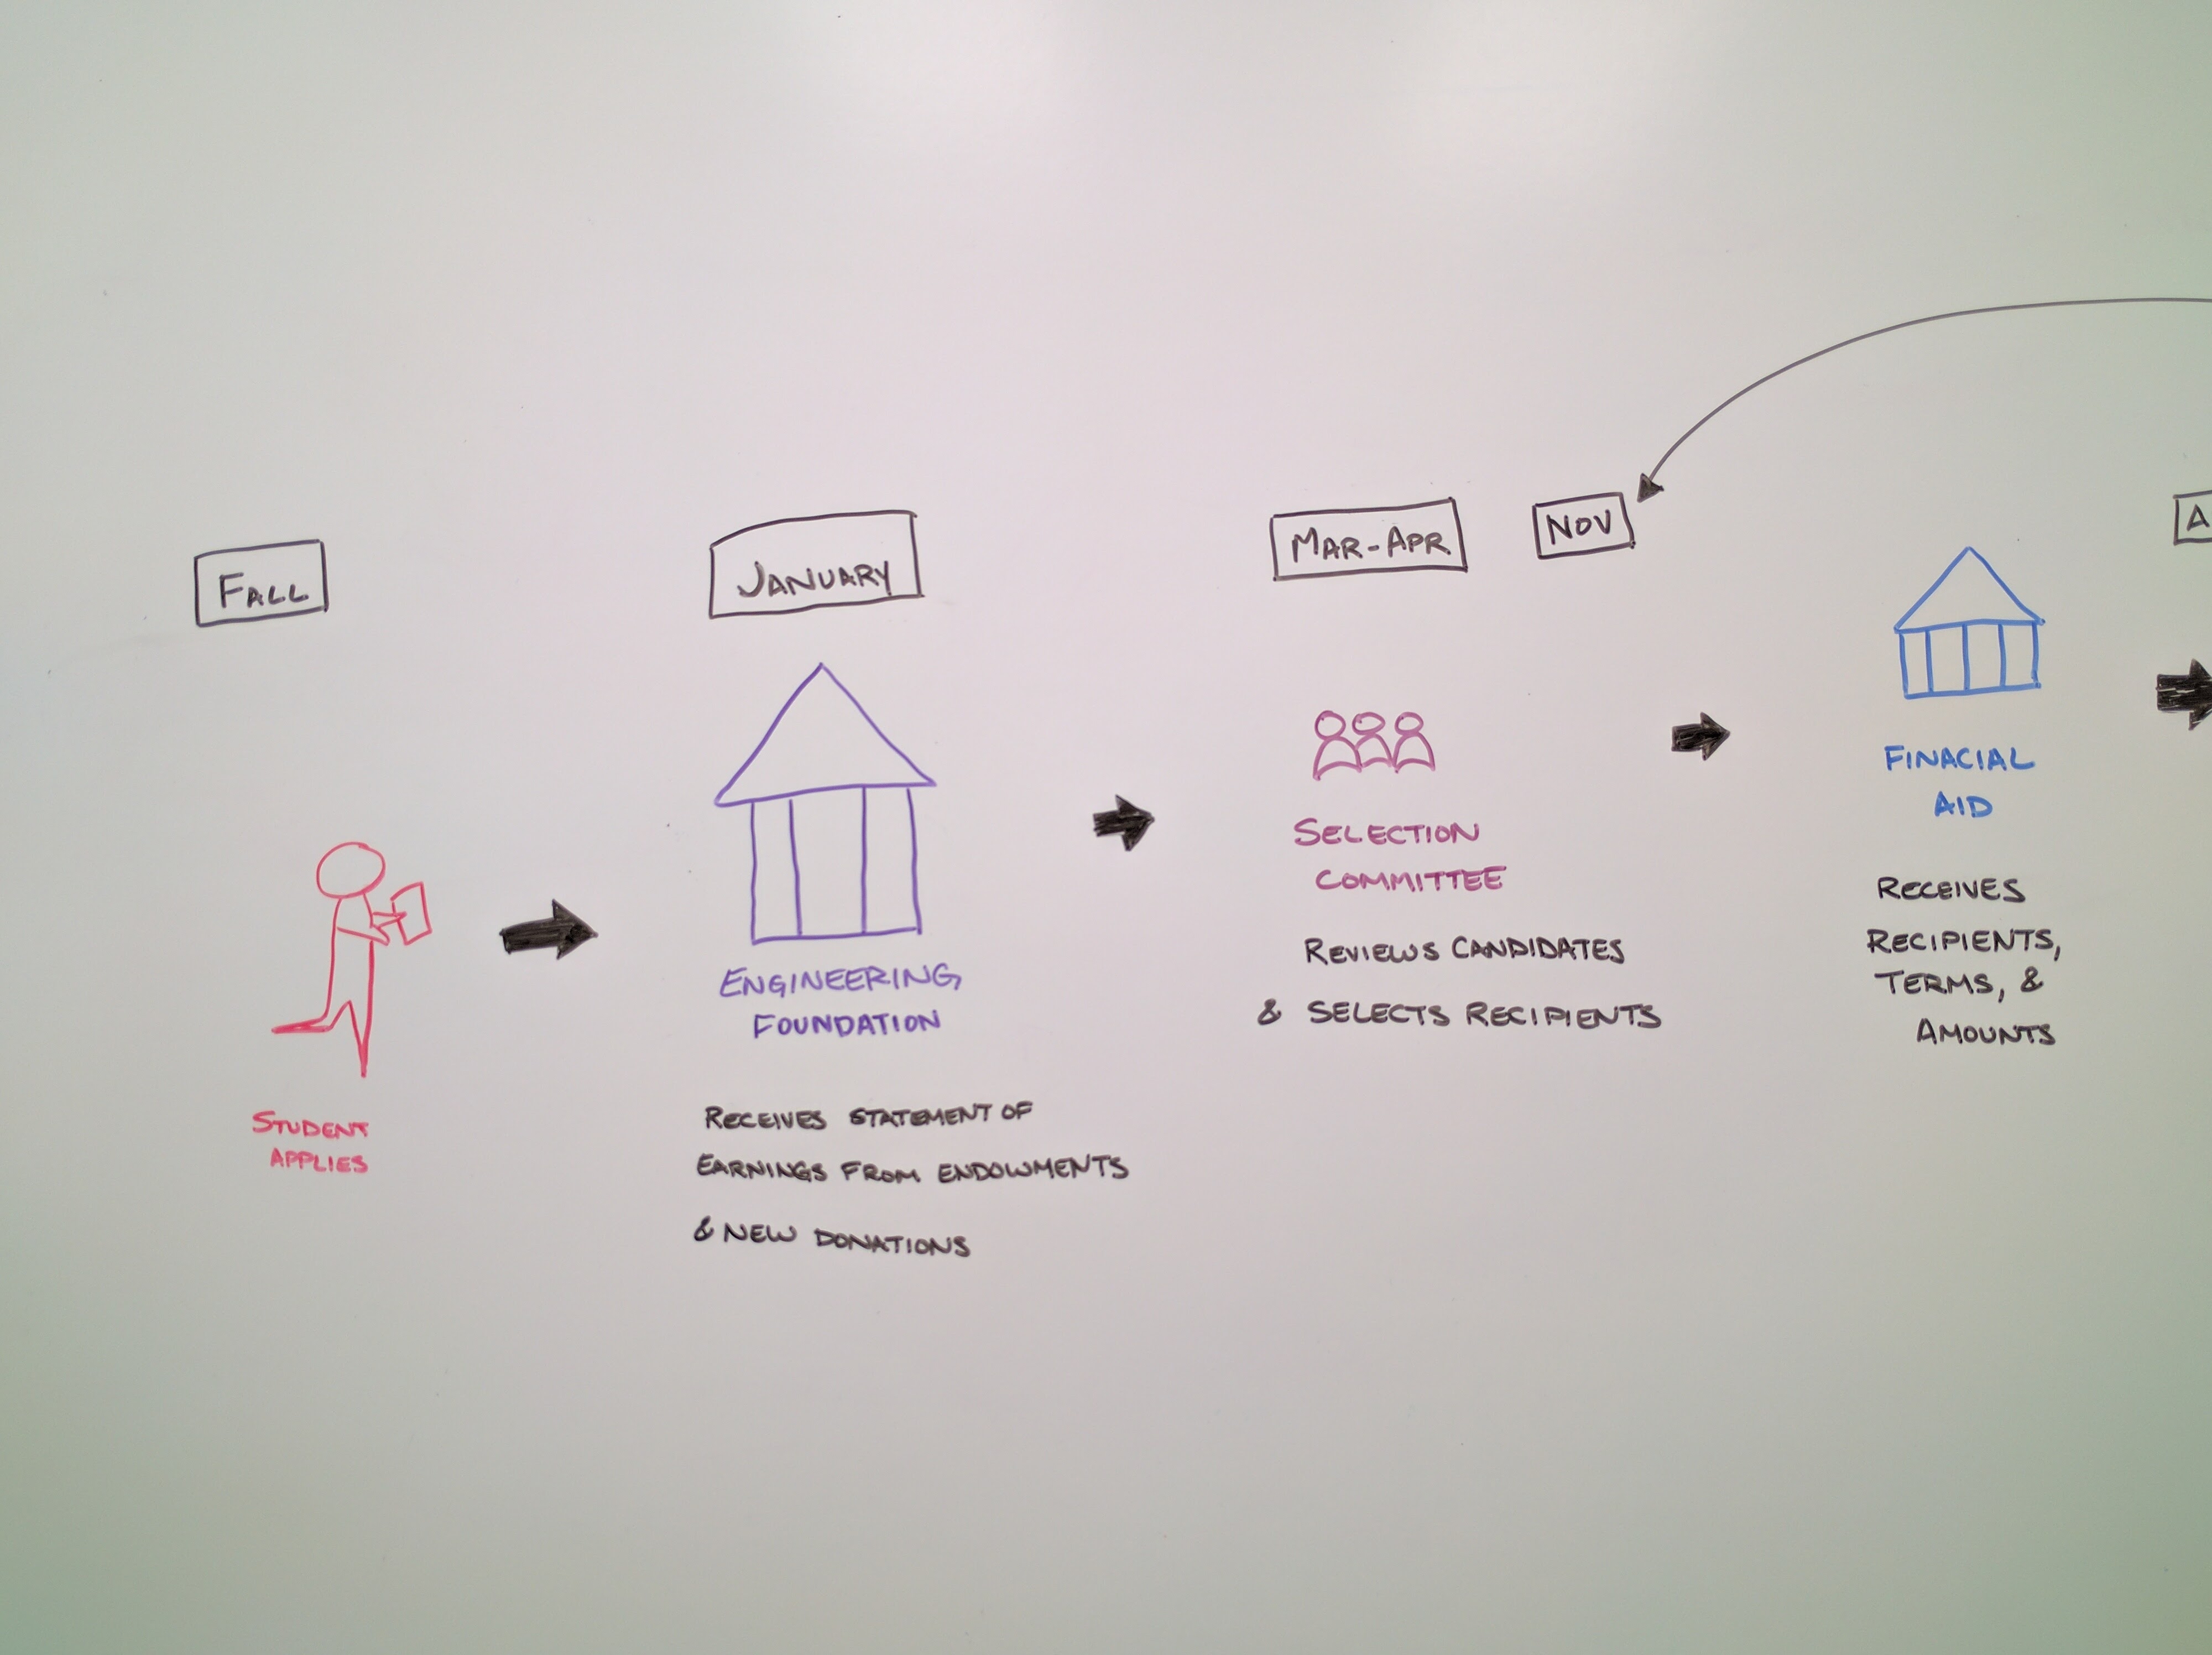 FALL
STUDENT
APPLIES
JANUARY
ENGINEERING
FOUNDATION
RECEIVES STATEMENT OF
EARNINGS FROM ENDOWMENTS
& NEW DONATIONS
MAR-APR
NOV
SELECTION
COMMITTEE
REVIEWS CANDIDATES
& SELECTS RECIPIENTS
FINACIAL
AID
RECEIVES
RECIPIENTS,
TERMS, &
AMOUNTS